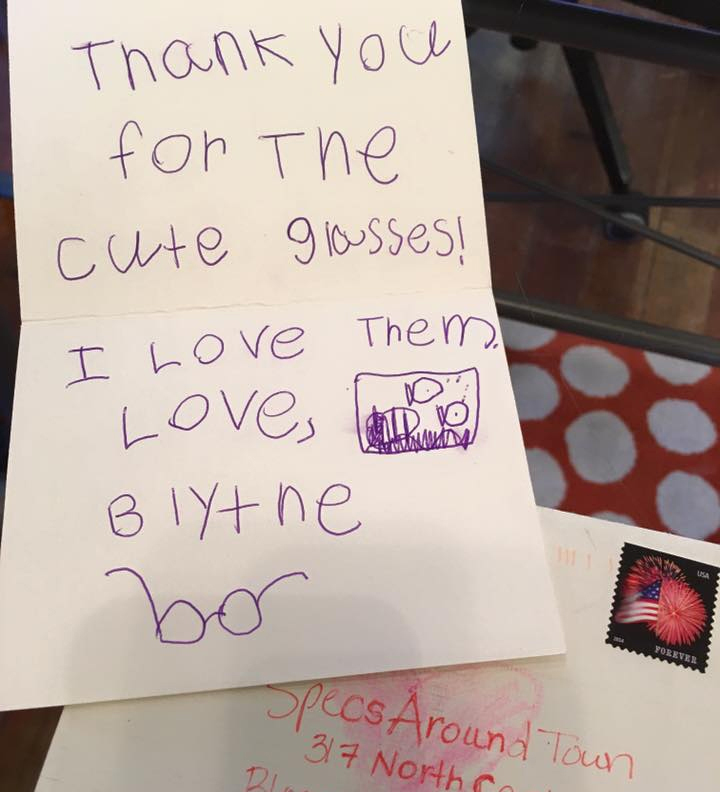 Thank you
for The
cute glasses!
I Love Them.
Love,
Blythe
USA
2014
FOREVER
Specs Around Town
317 North